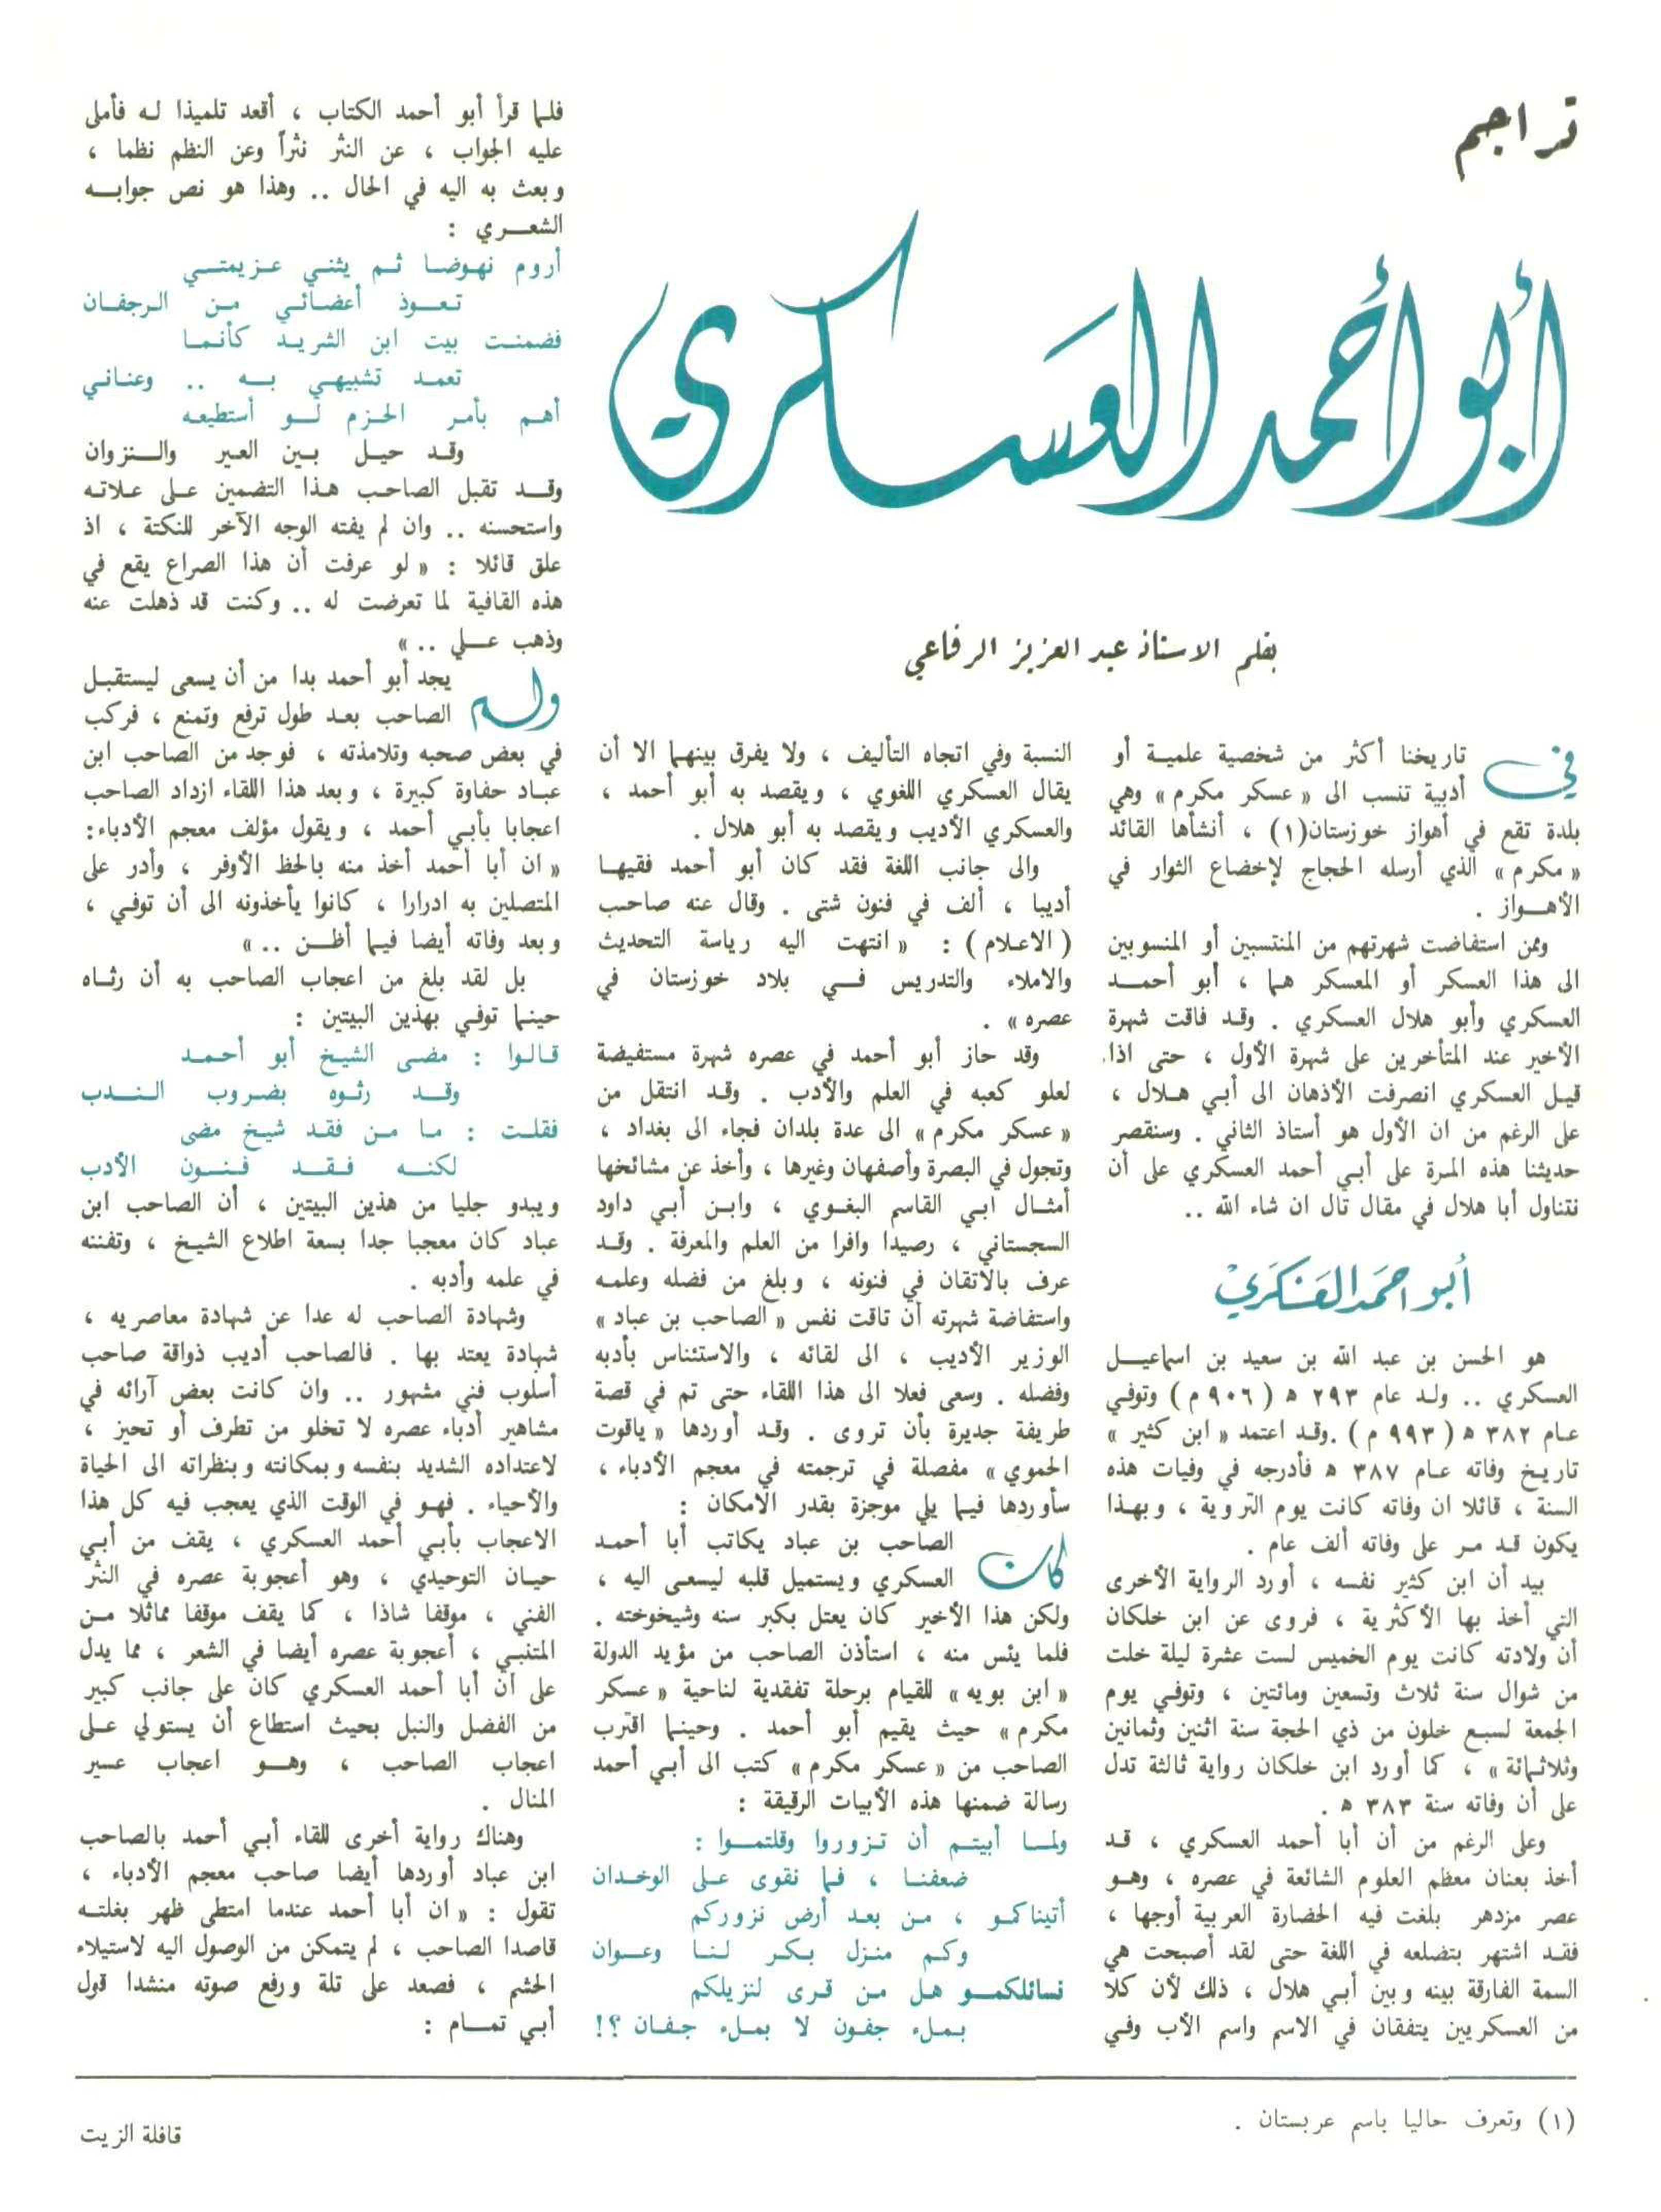 تراجم
أبو أحمد العسكري
بقلم الاستاذ عبد العزيز الرفاعي
في تاريخنا أكثر من شخصية علمية أو
أدبية تنسب الى « عسكر مكرم » وهي
بلدة تقع في أهواز خوزستان(١) ، أنشأها القائد
« مكرم » الذي أرسله الحجاج لإخضاع الثوار في
الأهواز .
وممن استفاضت شهرتهم من المنتسبين أو المنسوبين
الى هذا العسكر أو المعسكر هما ، أبو أحمد
العسكري وأبو هلال العسكري . وقد فاقت شهرة
الأخير عند المتأخرين على شهرة الأول ، حتى اذا
قيل العسكري انصرفت الأذهان الى أبي هلال ،
على الرغم من ان الأول هو أستاذ الثاني . وسنقصر
حديثنا هذه المرة على أبي أحمد العسكري على أن
نتناول أبا هلال في مقال تال ان شاء الله ..
أبو احمد العسكري
هو الحسن بن عبد الله بن سعيد بن اسماعيل
العسكري .. ولد عام ٢٩٣ ه ( ٩٠٦ م ) وتوفي
عام ٣٨٢ ه ( ٩٩٣ م ) .وقد اعتمد « ابن كثير »
تاريخ وفاته عام ٣٨٧ ه فأدرجه في وفيات هذه
السنة ، قائلا ان وفاته كانت يوم التروية ، وبهذا
يكون قد مر على وفاته ألف عام .
بيد أن ابن كثير نفسه ، أورد الرواية الأخرى
التي أخذ بها الأكثرية ، فروى عن ابن خلكان
أن ولادته كانت يوم الخميس لست عشرة ليلة خلت
من شوال سنة ثلاث وتسعين ومائتين ، وتوفي يوم
الجمعة لسبع خلون من ذي الحجة سنة اثنين وثمانين
وثلاثمائة » ، كما أورد ابن خلكان رواية ثالثة تدل
على أن وفاته سنة ٣٨٣ ه .
وعلى الرغم من أن أبا أحمد العسكري ، قد
أخذ بعنان معظم العلوم الشائعة في عصره ، وهو
عصر مزدهر بلغت فيه الحضارة العربية أوجها ،
فقد اشتهر بتضلعه في اللغة حتى لقد أصبحت هي
السمة الفارقة بينه وبين أبي هلال ، ذلك لأن كلا
من العسكريين يتفقان في الاسم واسم الأب وفي
النسبة وفي اتجاه التأليف ، ولا يفرق بينهما الا أن
يقال العسكري اللغوي ، ويقصد به أبو أحمد ،
والعسكري الأديب ويقصد به أبو هلال .
والى جانب اللغة فقد كان أبو أحمد فقيها
أديبا ، ألف في فنون شتى . وقال عنه صاحب
( الاعلام ) : « انتهت اليه رياسة التحديث
والاملاء والتدريس في بلاد خوزستان في
عصره » .
وقد حاز أبو أحمد في عصره شهرة مستفيضة
لعلو كعبه في العلم والأدب . وقد انتقل من
« عسكر مكرم » الى عدة بلدان فجاء الى بغداد ،
وتجول في البصرة وأصفهان وغيرها ، وأخذ عن مشائخها
أمثال ابي القاسم البغوي ، وابن أبي داود
السجستاني ، رصيدا وافرا من العلم والمعرفة . وقد
عرف بالاتقان في فنونه ، وبلغ من فضله وعلمه
واستفاضة شهرته أن تاقت نفس « الصاحب بن عباد »
الوزير الأديب ، الى لقائه ، والاستئناس بأدبه
وفضله . وسعى فعلا الى هذا اللقاء حتى تم في قصة
طريفة جديرة بأن تروى . وقد أوردها « ياقوت
الحموي » مفصلة في ترجمته في معجم الأدباء ،
سأوردها فيما يلي موجزة بقدر الامكان :
كان الصاحب بن عباد يكاتب أبا أحمد
العسكري ويستميل قلبه ليسعى اليه ،
ولكن هذا الأخير كان يعتل بكبر سنه وشيخوخته .
فلما يئس منه ، استأذن الصاحب من مؤيد الدولة
« ابن بويه » للقيام برحلة تفقدية لناحية « عسكر
مكرم » حيث يقيم أبو أحمد . وحينما اقترب
الصاحب من « عسكر مكرم » كتب الى أبي أحمد
رسالة ضمنها هذه الأبيات الرقيقة :
ولما أبيتم أن تزوروا وقلتموا :
ضعفنا ، فما نقوى على الوخدان
أتيناكمو ، من بعد أرض نزوركم
وكم منزل بكر لنا وعوان
نسائلكمو هل من قرى لنزيلكم
بملء جفون لا بملء جفان ؟!
فلما قرأ أبو أحمد الكتاب ، أقعد تلميذا له فأملى
عليه الجواب ، عن النثر نثراً وعن النظم نظما ،
وبعث به اليه في الحال .. وهذا هو نص جوابه
الشعري :
أروم نهوضا ثم يثني عزيمتي
تعوذ أعضائي من الرجفان
فضمنت بيت ابن الشريد كأنما
تعمد تشبيهي به .. وعناني
أهم بأمر الحزم لو أستطيعه
وقد حيل بين العير والنزوان
وقد تقبل الصاحب هذا التضمين على علاته
واستحسنه .. وان لم يفته الوجه الآخر للنكتة ، اذ
علق قائلا : « لو عرفت أن هذا الصراع يقع في
هذه القافية لما تعرضت له .. وكنت قد ذهلت عنه
وذهب علي .. »
ولم يجد أبو أحمد بدا من أن يسعى ليستقبل
الصاحب بعد طول ترفع وتمنع ، فركب
في بعض صحبه وتلامذته ، فوجد من الصاحب ابن
عباد حفاوة كبيرة ، وبعد هذا اللقاء ازداد الصاحب
اعجابا بأبي أحمد ، ويقول مؤلف معجم الأدباء:
« ان أبا أحمد أخذ منه بالحظ الأوفر ، وأدر على
المتصلين به ادرارا ، كانوا يأخذونه الى أن توفي ،
وبعد وفاته أيضا فيما أظن .. »
بل لقد بلغ من اعجاب الصاحب به أن رثاه
حينما توفي بهذين البيتين :
قالوا : مضى الشيخ أبو أحمد
وقد رثوه بضروب الندب
فقلت : ما من فقد شيخ مضى
لكنه فقد فنون الأدب
ويبدو جليا من هذين البيتين ، أن الصاحب ابن
عباد كان معجبا جدا بسعة اطلاع الشيخ ، وتفننه
في علمه وأدبه .
وشهادة الصاحب له عدا عن شهادة معاصريه ،
شهادة يعتد بها . فالصاحب أديب ذواقة صاحب
أسلوب فني مشهور .. وان كانت بعض آرائه في
مشاهير أدباء عصره لا تخلو من تطرف أو تحيز ،
لاعتداده الشديد بنفسه وبمكانته وبنظراته الى الحياة
والأحياء . فهو في الوقت الذي يعجب فيه كل هذا
الاعجاب بأبي أحمد العسكري ، يقف من أبي
حيان التوحيدي ، وهو أعجوبة عصره في النثر
الفني ، موقفا شاذا ، كما يقف موقفا مماثلا من
المتنبي ، أعجوبة عصره أيضا في الشعر ، مما يدل
على أن أبا أحمد العسكري كان على جانب كبير
من الفضل والنبل بحيث استطاع أن يستولي على
اعجاب الصاحب ، وهو اعجاب عسير
المنال .
وهناك رواية أخرى للقاء أبي أحمد بالصاحب
ابن عباد أوردها أيضا صاحب معجم الأدباء ،
تقول : « ان أبا أحمد عندما امتطى ظهر بغلته
قاصدا الصاحب ، لم يتمكن من الوصول اليه لاستيلاء
الحشم ، فصعد على تلة ورفع صوته منشدا قول
أبي تمام :
(١) وتعرف حاليا باسم عربستان .
قافلة الزيت